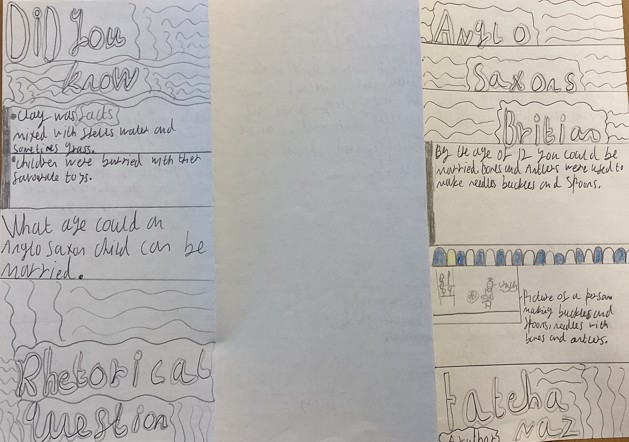 DiD You
know
•Clay was facts
mixed with shells water and
sometimes grass.
•children were burried with ther
favourate toys.
What age could an
Anglo Saxon child can be
married.
Rhetorical
Question
Anglo
Saxons
Britian
By the age of 12 you could be
married. bones and Antlers were used to
make needles buckles and Spoons.
Picture of a person
making buckles and
spoons, needles with
bones and antlers.
Fateha
naz
Author